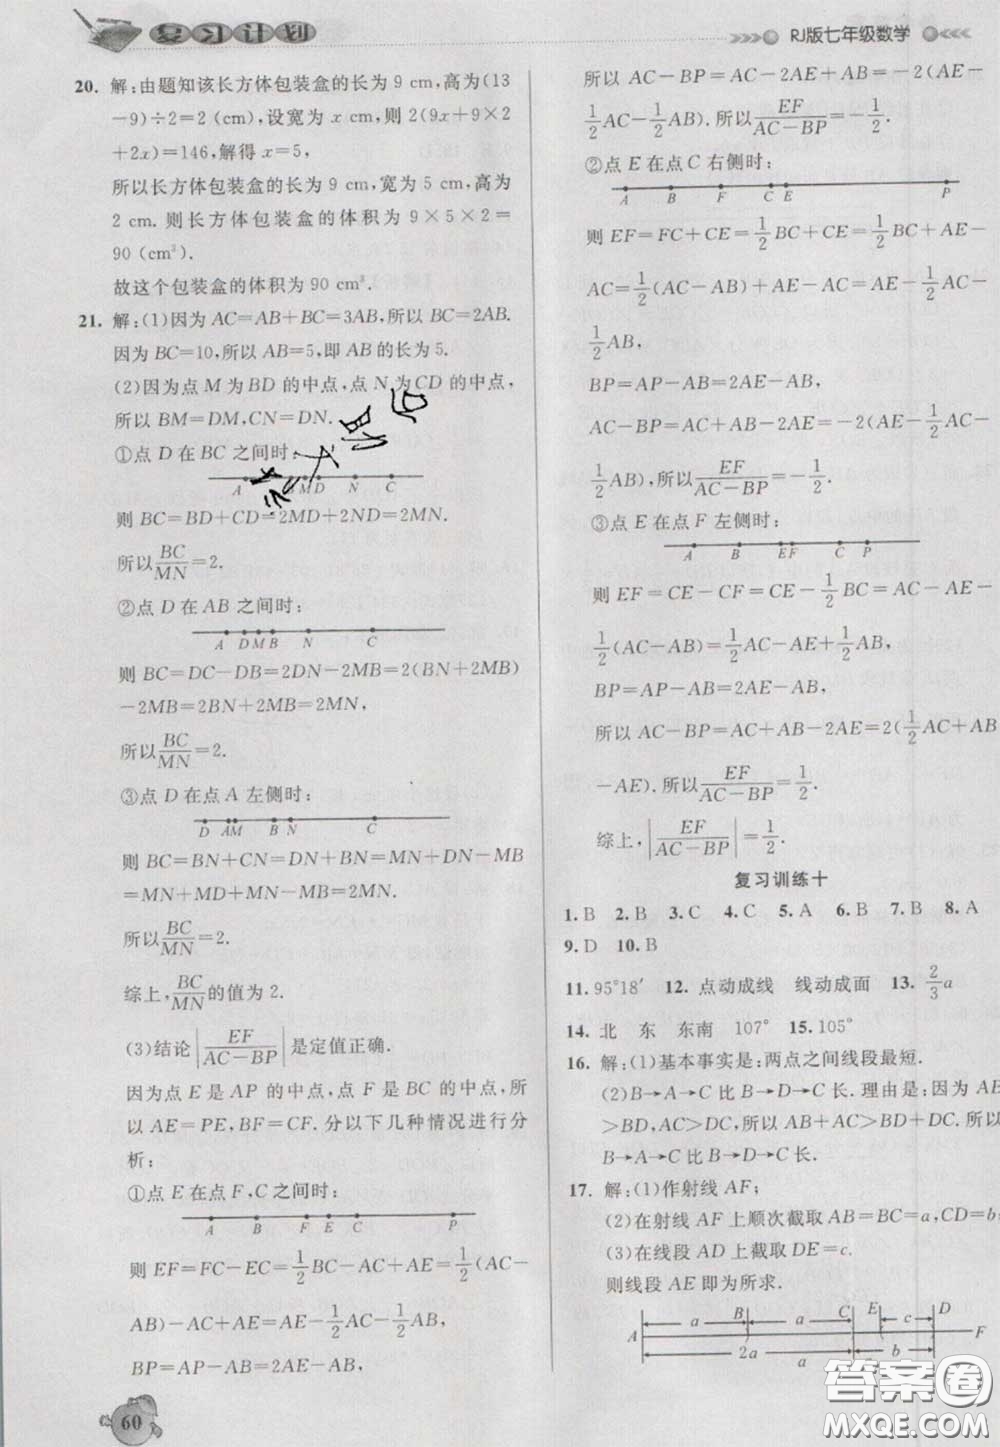 复习计划
RJ版七年级数学
20. 解:由题知该长方体包装盒的长为 9 cm,高为(13
-9)÷2=2 (cm),设宽为 x cm,则 2(9x+9×2
+2x)=146,解得 x=5,
所以长方体包装盒的长为 9 cm,宽为 5 cm,高为
2 cm. 则长方体包装盒的体积为 9×5×2=
90 (cm³).
故这个包装盒的体积为 90 cm³.
21. 解:(1)因为 AC=AB+BC=3AB,所以 BC=2AB.
因为 BC=10,所以 AB=5,即 AB 的长为 5.
(2)因为点 M 为 BD 的中点,点 N 为 CD 的中点,
所以 BM=DM,CN=DN.
①点 D 在 BC 之间时:
A M D N C
则 BC=BD+CD=2MD+2ND=2MN.
所以 BC/MN=2.
②点 D 在 AB 之间时:
A D M B N C
则 BC=DC-DB=2DN-2MB=2(BN+2MB)
-2MB=2BN+2MB=2MN,
所以 BC/MN=2.
③点 D 在点 A 左侧时:
D A M B N C
则 BC=BN+CN=DN+BN=MN+DN-MB
=MN+MD+MN-MB=2MN.
所以 BC/MN=2.
综上, BC/MN 的值为 2.
(3)结论 |EF/(AC-BP)| 是定值正确.
因为点 E 是 AP 的中点,点 F 是 BC 的中点,所
以 AE=PE,BF=CF. 分以下几种情况进行分
析:
①点 E 在点 F,C 之间时:
A B F E C P
则 EF=FC-EC=1/2BC-AC+AE=1/2(AC-
AB)-AC+AE=AE-1/2AC-1/2AB,
BP=AP-AB=2AE-AB,
60
所以 AC-BP=AC-2AE+AB=-2(AE-
1/2AC-1/2AB). 所以 EF/(AC-BP)=-1/2.
②点 E 在点 C 右侧时:
A B F C E P
则 EF=FC+CE=1/2BC+CE=1/2BC+AE-
AC=1/2(AC-AB)+AE-AC=AE-1/2AC-
1/2AB,
BP=AP-AB=2AE-AB,
AC-BP=AC-2AE+AB=-2(AE-1/2AC-
1/2AB). 所以 EF/(AC-BP)=-1/2.
③点 E 在点 F 左侧时:
A B E F C P
则 EF=CE-CF=CE-1/2BC=AC-AE-
1/2(AC-AB)=1/2AC-AE+1/2AB,
BP=AP-AB=2AE-AB,
所以 AC-BP=AC+AB-2AE=2(1/2AC+AB
-AE). 所以 EF/(AC-BP)=1/2.
综上, |EF/(AC-BP)|=1/2.
复习训练十
1. B 2. B 3. C 4. C 5. A 6. B 7. B 8. A
9. D 10. B
11. 95°18′ 12. 点动成线 线动成面 13. 2/3a
14. 北 东 东南 107° 15. 105°
16. 解:(1)基本事实是:两点之间线段最短.
(2)B→A→C 比 B→D→C 长. 理由是:因为 AB
>BD,AC>DC,所以 AB+AC>BD+DC. 所以
B→A→C 比 B→D→C 长.
17. 解:(1)作射线 AF;
(2)在射线 AF 上顺次截取 AB=BC=a,CD=b;
(3)在线段 AD 上截取 DE=c.
则线段 AE 即为所求.
A a B a C E c D F
2a a b
答案圈
MXQE.COM